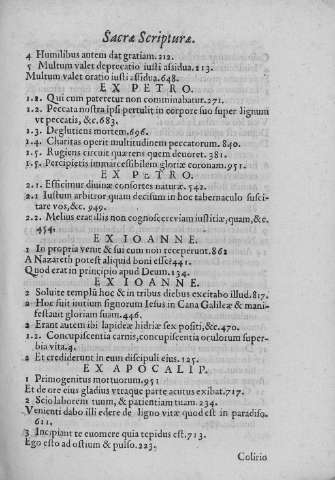 Sacræ Scripturæ.
4 Humilibus autem dat gratiam. 212.
5 Multum valet deprecatio iusti assidua. 213.
Multum valet oratio iusti assidua. 648.
EX PETRO.
1.2. Qui cum pateretur non comminabatur. 271.
1.2. Peccata nostra ipsi pertulit in corpore suo super lignum
vt peccatis, &c. 683.
1.3. Deglutiens mortem. 696.
1.4. Charitas operit multitudinem peccatorum. 840.
1.5. Rugiens circuit quærens quem deuoret. 381.
1.5. Percipietis immarcessibilem gloriæ coronam. 951.
EX PETRO.
2.1. Efficimur diuinæ consortes naturæ. 542.
2.1 Iustum arbitror quam decisum in hoc tabernaculo susci-
tare vos, &c. 949.
2.2. Melius erat illis non cognoscere viam iustitiæ, quam, &c.
454.
EX IOANNE.
1 In propria venit & sui eum non receperunt. 862
A Nazareth potest aliquid boni esse? 441.
Quod erat in principio apud Deum. 134.
EX IOANNE.
2 Soluite templū hoc & in tribus diebus excitabo illud. 817.
2 Hoc fuit initium signorum Iesus in Cana Galileæ & mani-
festauit gloriam suam. 446.
2 Erant autem ibi lapideæ hidriæ sex positi, &c. 470.
1.2. Concupiscentia carnis, concupiscentia oculorum super-
bia vitæ. 4.
2 Et crediderunt in eum discipuli eius. 125.
EX APOCALIP.
1 Primogenitus mortuorum. 951
Et de ore eius gladius vtraque parte acutus exibat. 717.
2 Scio laborem tuum, & patientiam tuam. 234.
Venienti dabo illi edere de ligno vitæ quod est in paradiso.
611.
3 Incipiant te euomere quia tepidus est. 713.
Ego esto ad ostium & pulso. 223.
Colirio